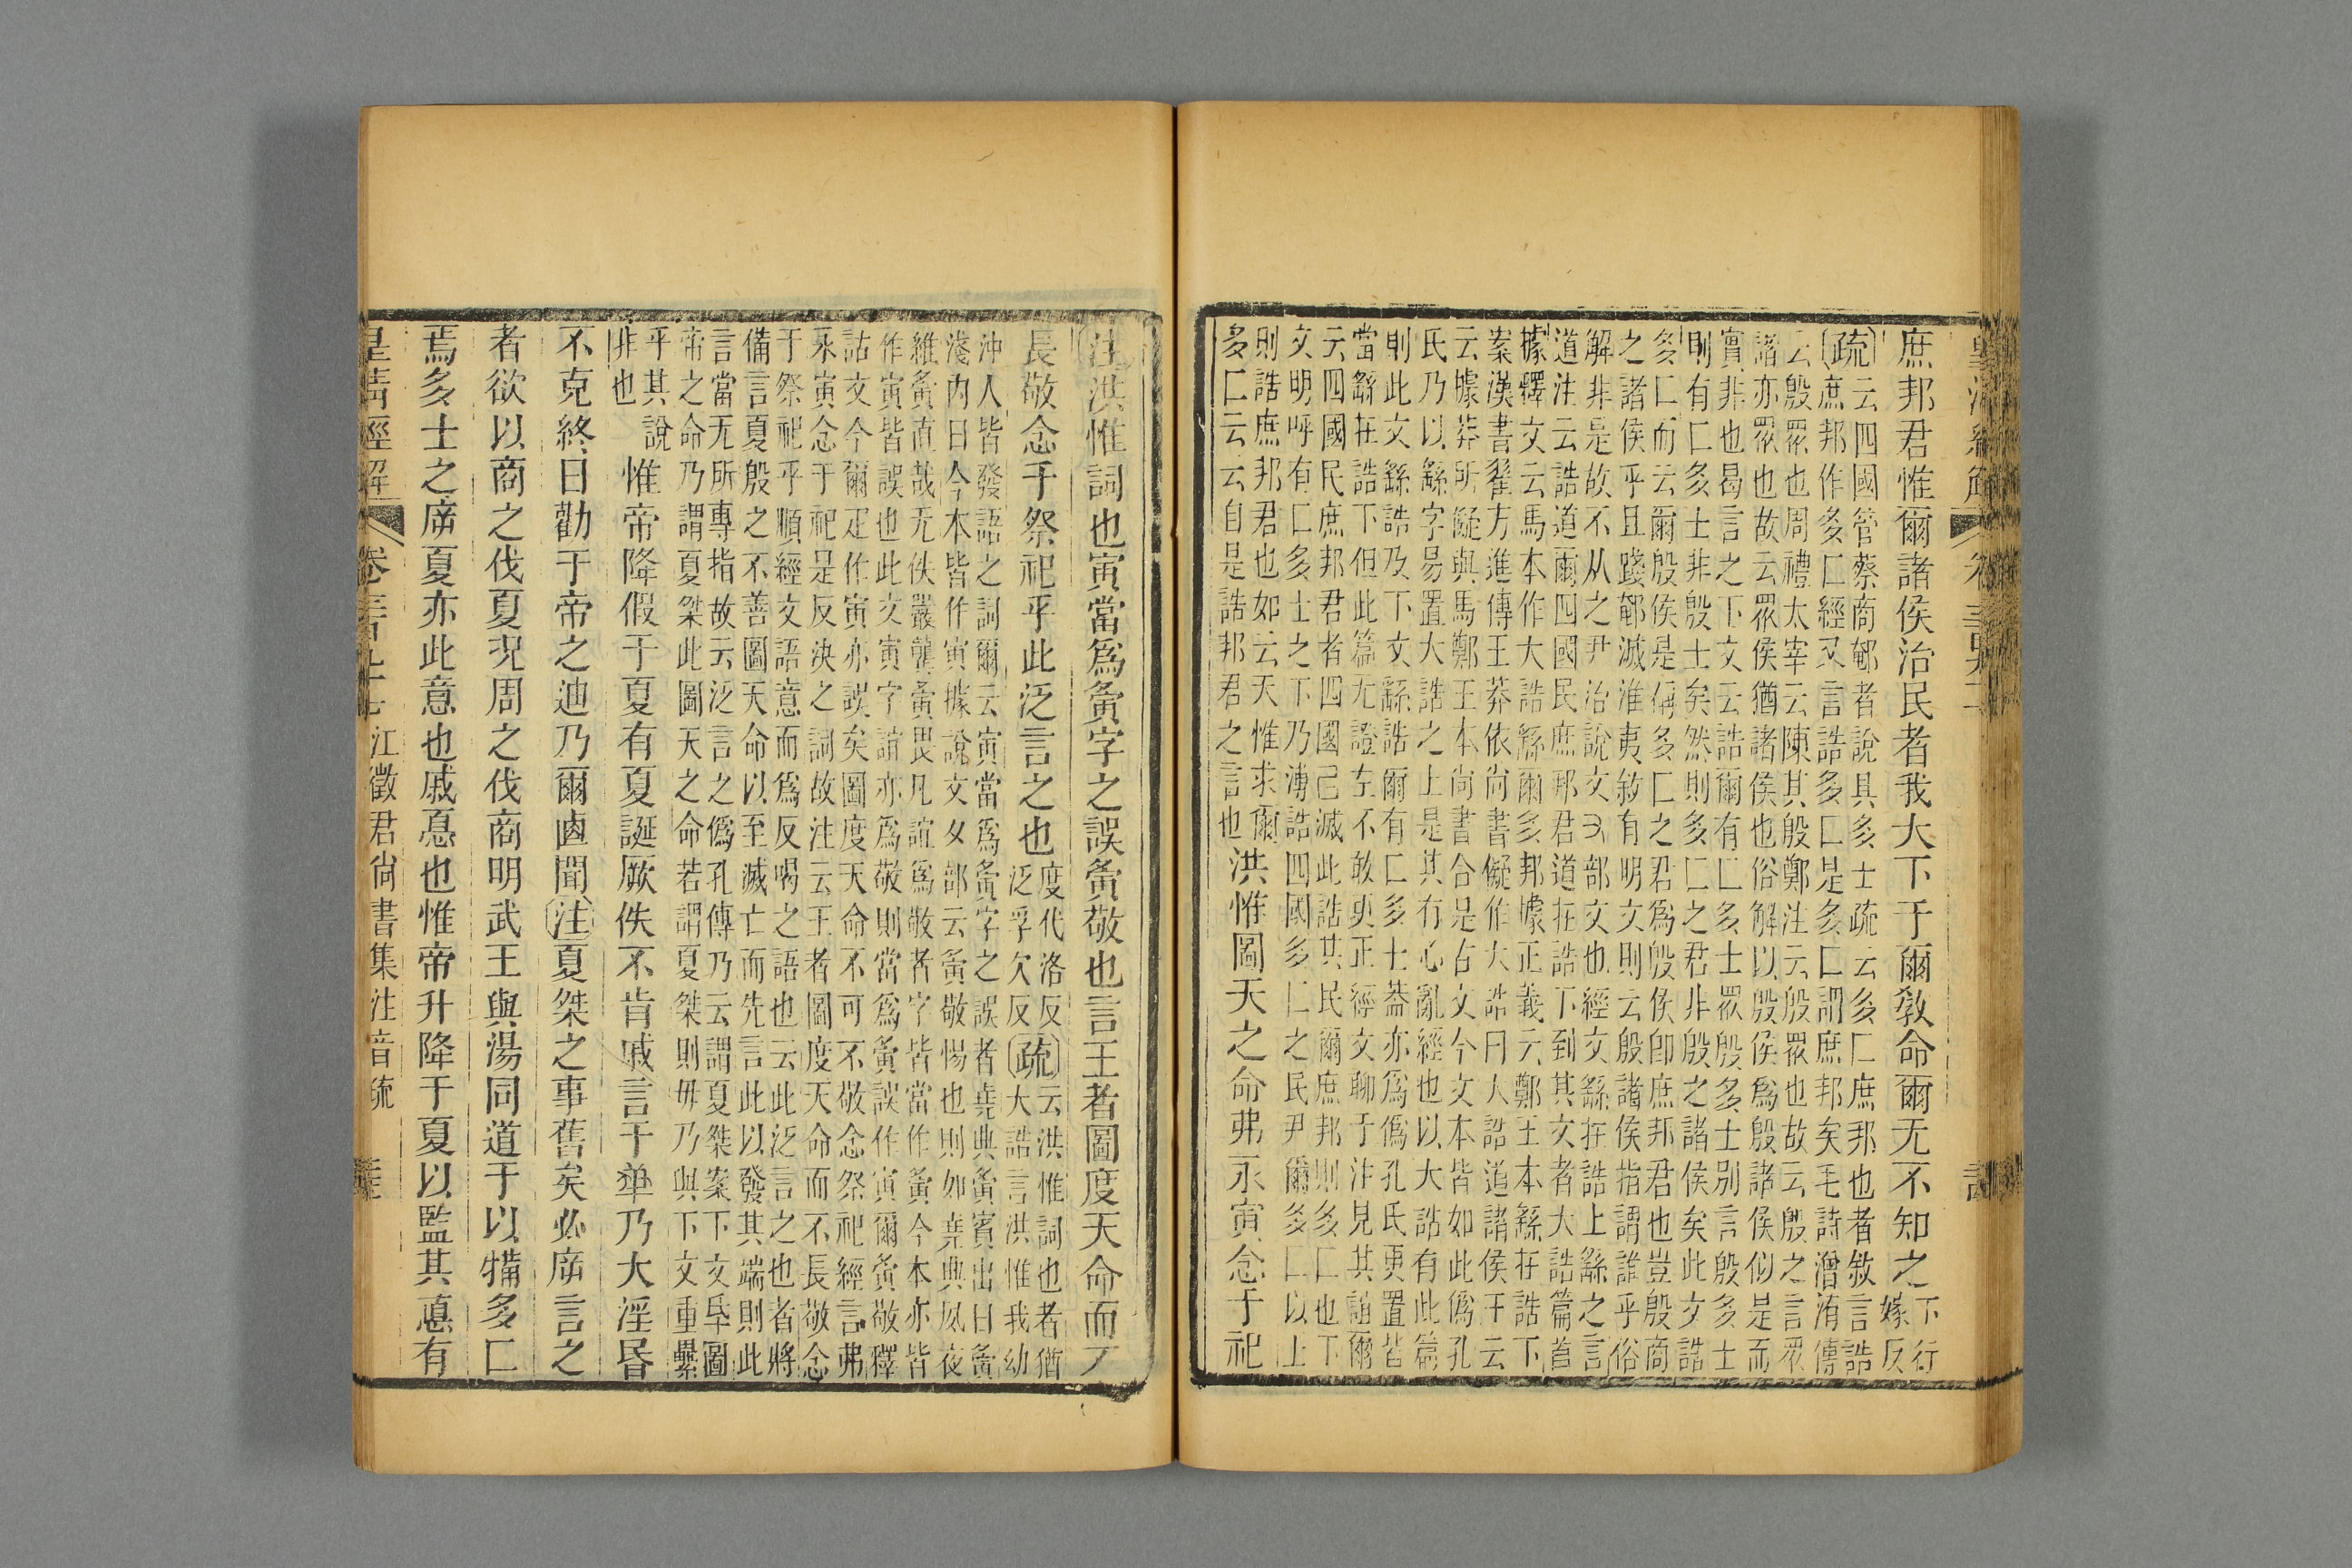 庶邦君惟爾諸侯治民者我大下于爾敎命爾无不知之下行嫁反
疏云四國管蔡商郼者說具多士疏云多匚庶邦也者敘言誥
庶邦作多匚經又言誥多匚是多匚謂庶邦矣毛詩潧洧傳
云殷眾也周禮太宰云陳其殷鄭注云殷眾也故云殷之言眾
諸亦眾也故云眾侯猶諸侯也俗解以殷侯爲殷諸侯似是而
實非也曷言之下文云誥爾有匚多士眾殷多士別言殷多士
則有匚多士非殷士矣然則多匚之君非殷之諸侯矣此文誥
多匚而云爾殷侯是偁多匚之君爲殷侯卽庶邦君也豈殷商
之諸侯乎且踐郼滅淮夷敘有明文則云殷諸侯指謂誰乎俗
解非是故不从之尹治說文又部文也經文繇在誥上繇之言
道注云誥道爾四國民庶邦君道在誥下到其文者大誥篇首
據釋文云馬本作大誥繇爾多邦據正義云鄭王本繇在誥下
案漢書翟方進傳王莽依尚書儗作大誥曰大誥道諸侯王云
云據莽所儗與馬鄭王本尚書合是古文今文本皆如此僞孔
氏乃以繇字易置大誥之上是其有心亂經也以大誥有此篇
則此文繇誥及下文繇誥爾有匚多士葢亦爲僞孔氏更置皆
當繇在誥下但此篇无證左不敢臾正經文聊于注見其誼爾
云四國民庶邦君者四國己滅此誥其民爾庶邦則多匚也下
文明呼有匚多士之下乃溥誥四國多匚之民尹爾多匚以上
則誥庶邦君也如云天惟求爾
多匚云云自是誥邦君之言也洪惟圖天之命弗永寅念于祀
注洪惟詞也寅當爲夤字之誤夤敬也言王者圖度天命而不
長敬念于祭祀乎此泛言之也度代洛反泛孚欠反疏云洪惟詞也者猶
大誥言洪惟我幼
沖人皆發語之詞爾云寅當爲夤字之誤者堯典夤賓出日夤
淺內日今本皆作寅據說文夕部云夤敬惕也則如堯典夙夜
維夤直哉无佚嚴龔夤畏凡誼爲敬者字皆當作夤今本亦皆
作寅皆誤也此文寅字誼亦爲敬則當爲夤誤作寅爾夤敬釋
詁文今爾疋作寅亦誤矣圖度天命不可不敬念祭祀經言弗
永寅念于祀是反決之詞故注云王者圖度天命而不長敬念
于祭祀乎順經文語意而爲反喝之語也云此泛言之也者將
備言夏殷之不善圖天命以至滅亡而先言此以發其端則此
言當无所專指故云泛言之僞孔傳乃云謂夏桀案下文厥圖
帝之命乃謂夏桀此圖天之命若謂夏桀則毋乃與下文重纍
乎其說
非也惟帝降假于夏有夏誕厥佚不肯戚言于乃大淫昏
不克終日勸于帝之迪乃爾卣聞注夏桀之事舊矣必㡿言之
者欲以商之伐夏況周之伐商明武王與湯同道于以多匚
焉多士之㡿夏亦此意也戚惪也惟帝升降于夏以監其惪有
皇清經解 卷三百九十七 江徵君尚書集注音疏